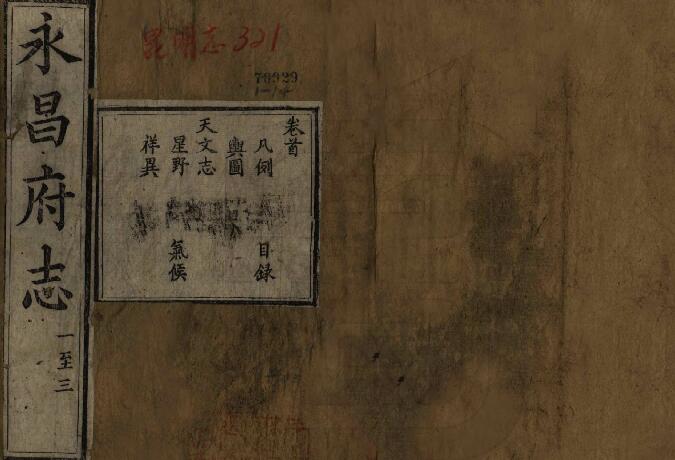 永昌府志
一至三
卷首
凡例 目録
輿圖
天文志
星野 氣候
祥異
志321
70929
1-14